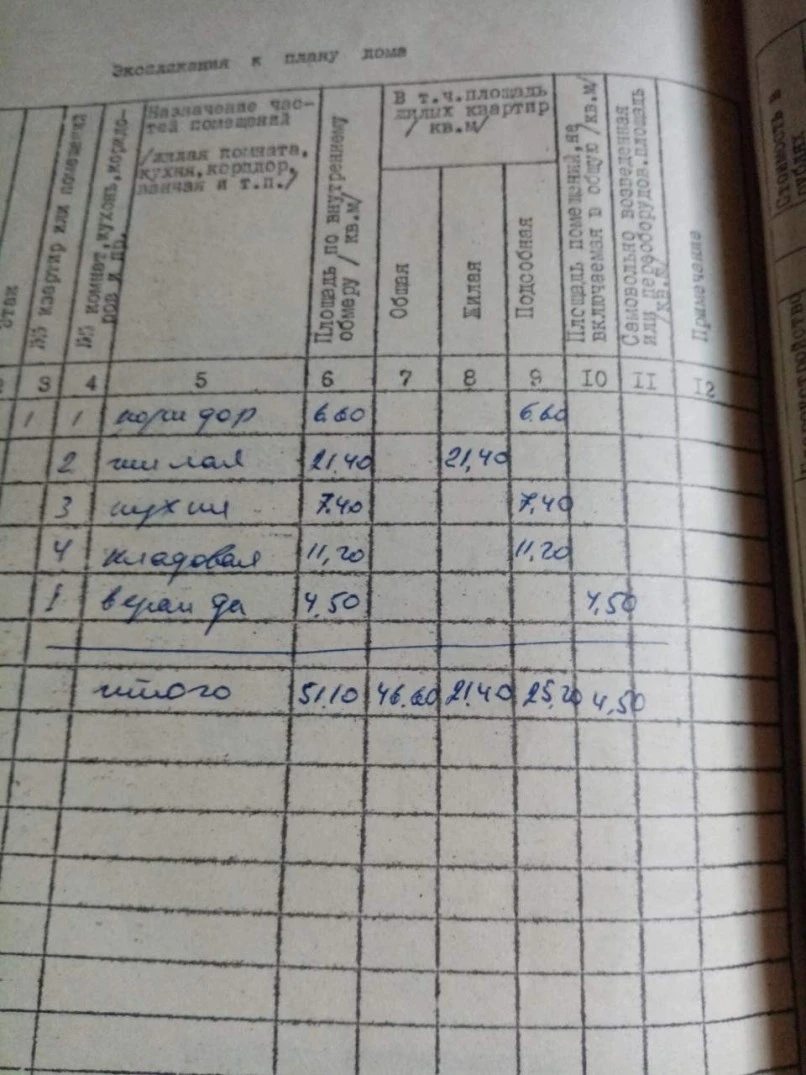 Экспликация к плану дома
Этаж
№№ квартир или помещения
№№ комнат, кухонь, коридо-
ров и пр.
Назначение час-
тей помещений
/жилая комната,
кухня, коридор,
ванная и т.п./
Площадь по внутреннему
обмеру / кв.м/
В т.ч.площадь
жилых квартир
/ кв.м/
Общая
Жилая
Подсобная
Площадь помещений, не
включаемая в общую /кв.м/
Самовольно возведенная
или переоборудов. площадь
/кв.м/
Примечание
3 4 5 6 7 8 9 10 11 12
1 1 коридор 6.60 6.60
2 жилая 21,40 21,40
3 кухня 7.40 7,40
4 кладовая 11,20 11.20
I веранда 4,50 4,50
итого 51.10 46.60 21.40 25,20 4,50
Стоимость в
рублях